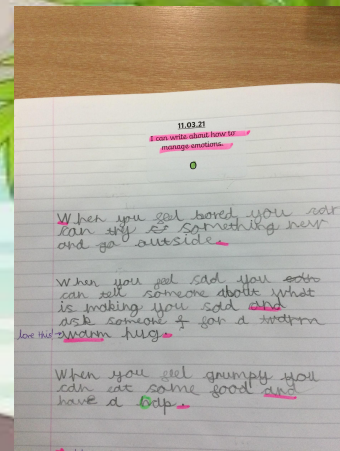 11.03.21
I can write about how to
manage emotions.
When you eel bored you can
can try to something new
and go outside.
When you feel sad you can
can tell someone about what
is making you sad and
ask someone f for a warm
love this! warm hug.
When you eel grumpy you
can eat some food and
have a nap.